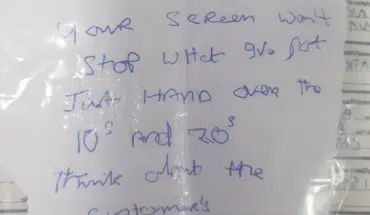 Your SCREEN Won't
STOP WHAT I've got
JUST HAND over the
10s AND 20s
think about the
customer's